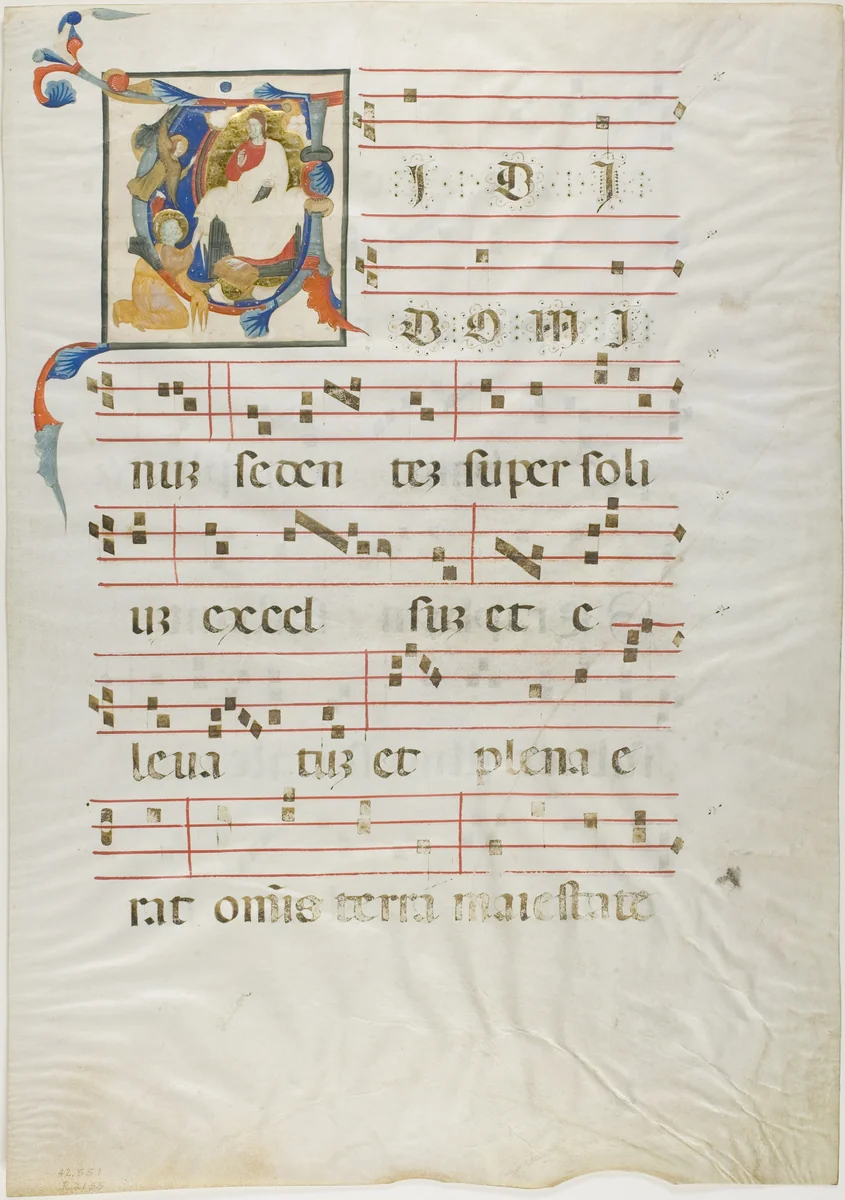 V I D I
D O M I
nuꝫ seden teꝫ super soli
uꝫ excel suꝫ et e
leua tuꝫ et plena e
rat om̃is terra maiestate
42.551
R.2155